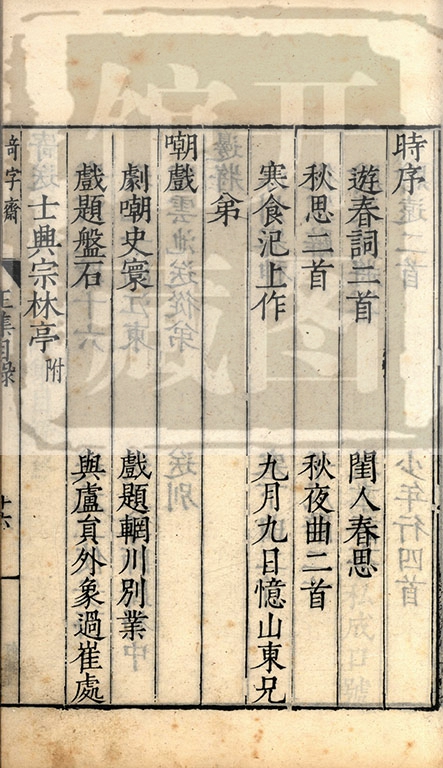 時序
遊春詞二首 閨人春思
秋思二首 秋夜曲二首
寒食汜上作 九月九日憶山東兄
弟
嘲戲
劇嘲史寰 戲題輞川別業
戲題盤石 與盧員外象過崔處
士興宗林亭 附
奇字齋 王集目錄 十六